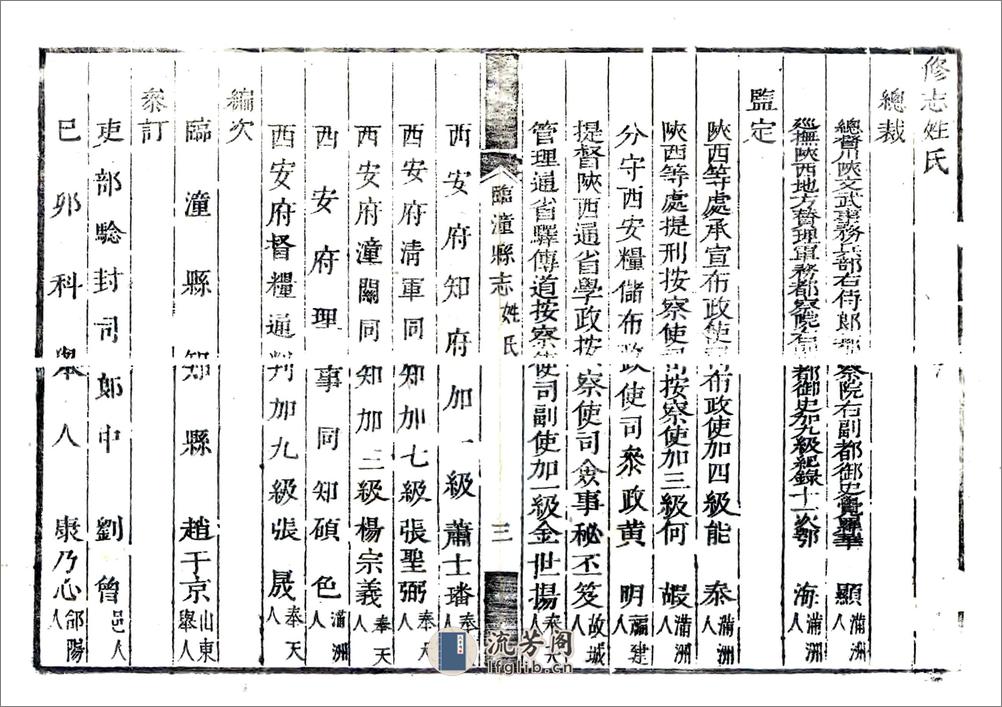 修志姓氏
總裁
總督川陝文武事務兵部右侍郎都察院右副都御史覺羅華顯滿洲人
巡撫陝西地方贊理軍務都察院右副都御史加九級紀錄十二次鄂海滿洲人
監定
陝西等處承宣布政使司布政使加四級能泰滿洲人
陝西等處提刑按察使司按察使加三級何嘏滿洲人
分守西安糧儲布政使司叅政黃明福建人
提督陝西通省學政按察使司僉事秘丕笈故城人
管理通省驛傳道按察使司副使加一級金世揚奉天人
臨潼縣志 姓氏 三
西安府知府加一級蕭士璠奉天人
西安府清軍同知加七級張聖弼奉天人
西安府潼關同知加三級楊宗義奉天人
西安府理事同知碩色滿洲人
西安府督糧通判加九級張晟奉天人
編次
臨潼縣知縣趙于京山東舉人
叅訂
吏部驗封司郎中劉曾邑人
己卯科舉人康乃心郃陽人
流芳阁
lfglib.cn